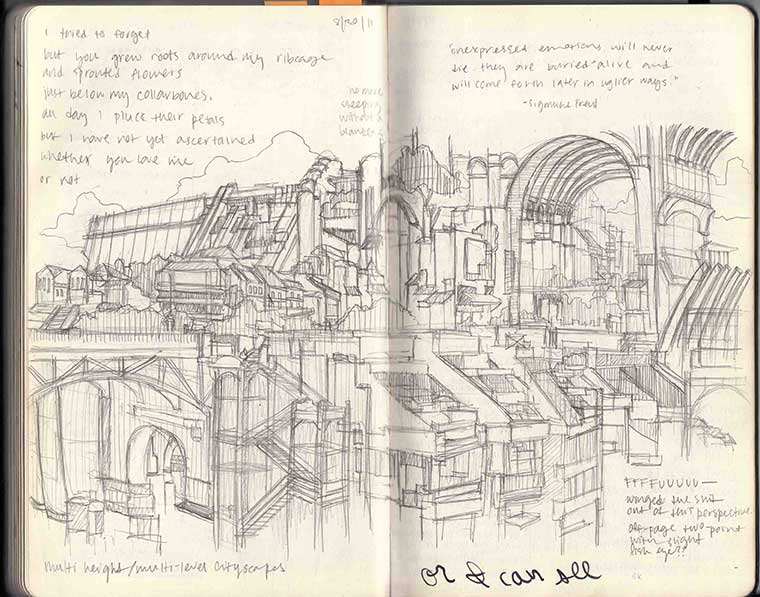 i tried to forget
but you grew roots around my ribcage
and sprouted flowers
just below my collarbones.
all day i pluck their petals
but i have not yet ascertained
whether you love me
or not
/20/11
no more
sleeping
without a
blanket
"unexpressed emotions will never
die. they are buried alive and
will come forth later in uglier ways."
-Sigmund Freud
FFFFUUUUU—
winged the shit
out of this perspective.
off-page two-point
with slight
fish eye??
multi height/multi-level cityscapes
or I can see